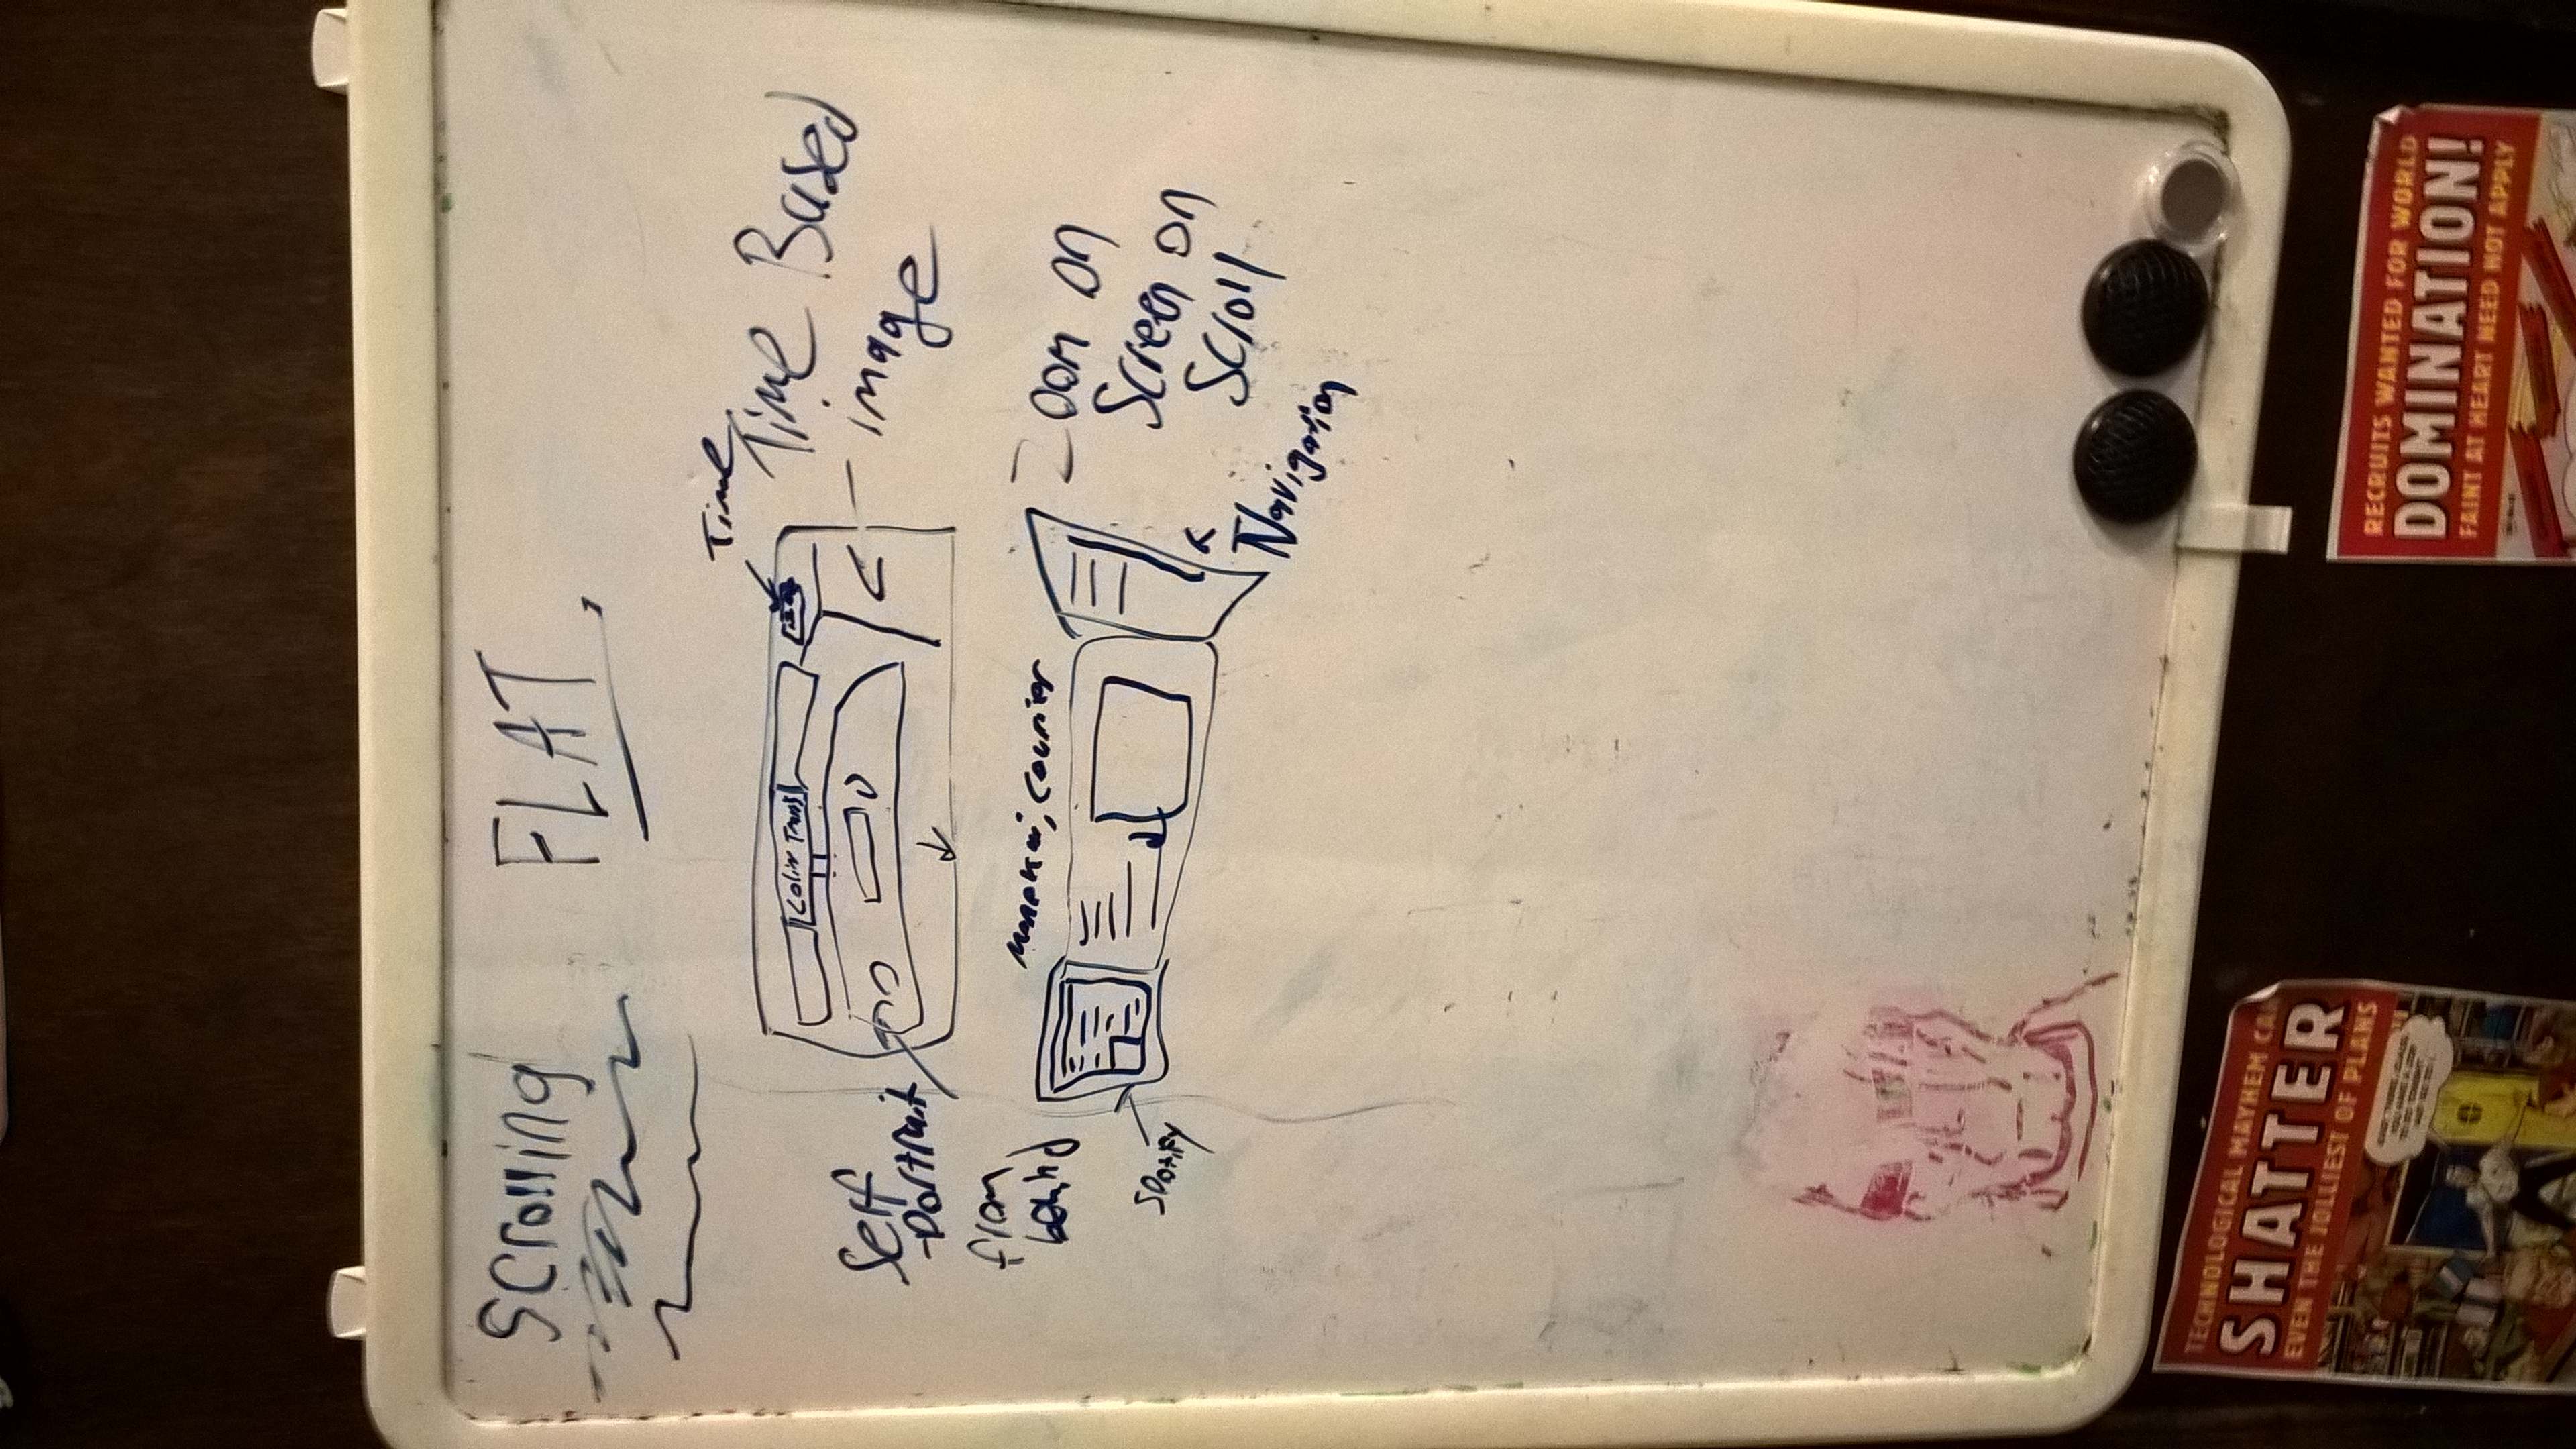 Scrolling
FLAT.
Time
Time Based
image
Colin
Self
-Portrait
from
behind
Monokai, Courier
Spotify
Zoom on
Screen on
Scroll
Navigation
TECHNOLOGICAL MAYHEM CAN
SHATTER
EVEN THE JOLLIEST OF PLANS
RECRUITS WANTED FOR WORLD
DOMINATION!
FAINT AT HEART NEED NOT APPLY